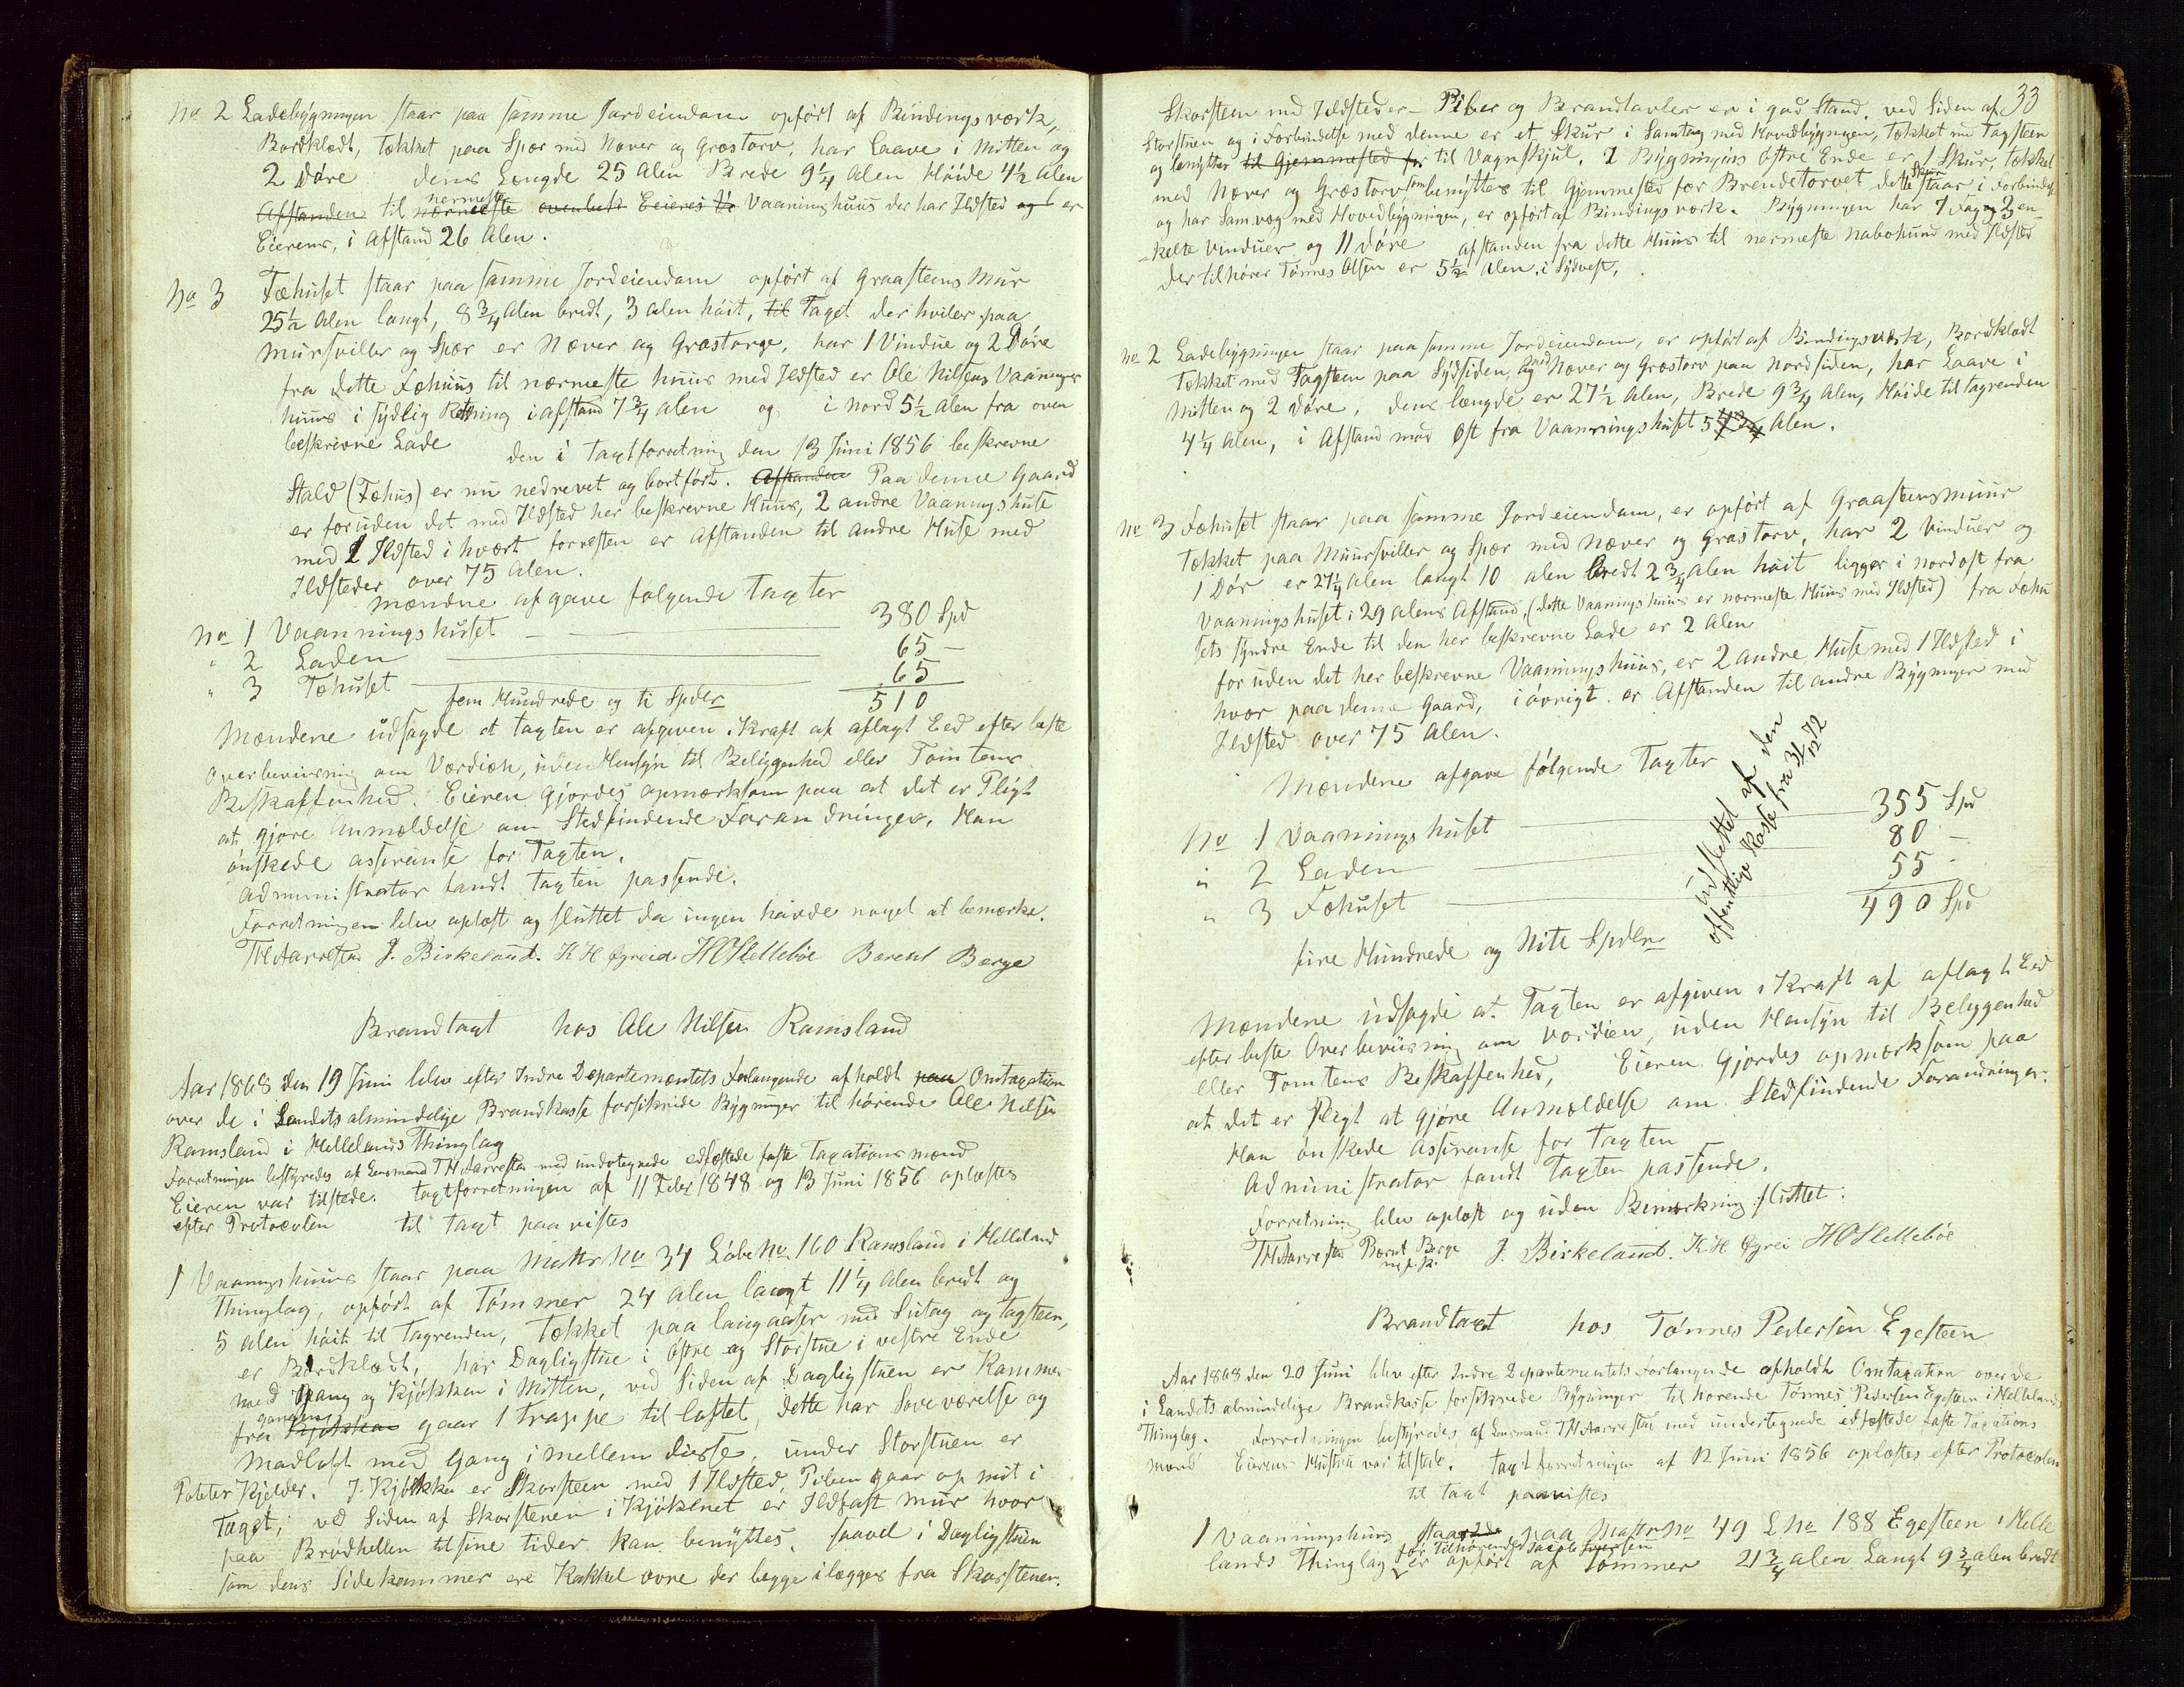 No 2 Ladebygningen staar paa samme Jordeiendom opført af Bindingsværk,
Bordklædt, tækket paa Spær med Næver og Græstorv, har Laave i Mitten og
2 Døre dens Længde 25 Alen Brede 9 1/4 Alen Høide 4 1/2 Alen
Afstanden til nermeste nærmeste Eieres Vaaninghuus der har Ildsted og er
Eierens, i Afstand 26 Alen.
No 3 Fæhuset staar paa samme Jordeiendom opført af Graasteens Muur
25 1/2 Alen langt, 8 3/4 Alen bredt, 3 alen høit, til Taget der hviler paa
Mursviller og Spær er Næver og Græstorv, har 1 Vindue og 2 Døre
fra dette Fæhuus til nærmeste huus med Ildsted er Ole Nilsens Vaanings
huus i sydlig Retning i afstand 7 3/4 alen og i Nord 5 1/2 Alen fra oven
beskrevne Lade den i Taxtforretning den 13 Juni 1856 beskrevne
Stald (Fæhus) er nu nedrevet og bortført. Afstanden Paa denne Gaard
er foruden det med Ildsted her beskrevne Huus, 2 andre Vaaningshuse
med 1 Ildsted i hvært forresten er Afstanden til andre Huse med
Ildsteder over 75 Alen.
Mændene afgave følgende Taxter
No 1 Vaanningshuset 380 Spd
" 2 Laden 65 –
" 3 Fæhuset 65
fem Hundrede og ti Spdlr 510
Mændene udsagde at taxten er afgiven i Kraft af aflagt Eed efter beste
Overbeviisning om Værdien, uden Hensyn til Beliggenhed eller Tomtens
Beskaffenhed. Eieren gjordes opmærksom paa at det er Pligt
at gjøre Anmældelse om Stedfindende Forandringer. Han
ønskede assuranse for Taxten.
Administrator fandt taxten passende.
Forretningen blev oplæst og sluttet da ingen havde noget at bemærke.
TH Aarrestad J. Birkeland. K H Eyreid H O Hellebøe Bærent Berge
Brandtaxt hos Ole Nilsen Ramsland
Aar 1868 den 19 Juni blev efter Indre Departementets Forlangende afholdt paa Omtaxation
over de i Landets almindelige Brandkasse forsikrede Bygninger tilhørende Ole Nilsen
Ramsland i Hellelands Thinglag
Forretningen bestyredes af Lensmand TH Aarrestad med undertegnede edfæstede faste Taxationsmænd
Eieren var tilstede. Taxtforretningen af 11 Feber 1848 og 13 Juni 1856 oplæstes
efter Protocolen til Taxt paavistes
1 Vaaningshuus staar paa Mattr No 34 Løbe No 160 Ramsland i Helleland
Thinglag, opført af Tømmer 24 Alen langt 11 1/4 Alen bredt og
5 alen høit til Tagrenden, Tækket paa langaaser med Sutag og tagsteen,
er Bordklædt, har Dagligstue i østre og Storstue i vestre Ende
med Gang og Kjøkken i Mitten, ved Siden af Dagligstuen er Kammer
fra gangen Kjøkken gaar 1 trappe til loftet dette har Soveværelse og
Madloft med Gang imellem disse, under Storstuen er
Poteter Kjelder. I Kjøkken er Skorsteen med 1 Ildsted, Piben gaar op mit i
Taget; ved Siden af Skorstenen i Kjøkkenet er Ildfast mur hvor
paa Brødhellen til sine tider kan benyttes. saavel i Dagligstuen
som dens Sidekammer ere Kakkelovne der begge ilægges fra Skorstenen.
33
Skorsteen med Ildsteder – Piber og Brandtavler er i god Stand. ved Siden af
Storstuen og i Forbindelse med denne er et Skur i Samtag med Hovedbygningen, Tækket med Tagsteen
og benyttes til Gjemmested for til Vognskjul. I Bygningens østre Ende er 1 Skur, tækket
med Næver og Græstorv som benyttes til Gjemmested for Brendetorvet dette Skur staar i Forbindelse
og har Samvæg med Hovedbygningen, er opført af Bindingsværk. Bygningen har 7 fag og 3 en-
-kelte Vinduer og 11 Døre afstanden fra dette Huus til nermeste nabohuus med Ildsted
der tilhører Tønnes Olsen er 5 1/2 Alen. i Sydvest.
No 2 Ladebygningen staar paa samme Jordeiendom, er opført af Bindingsværk, Bordklædt
Tækket med Tagsteen paa Sydsiden, og med Næver og Græstorv paa Nordsiden, har Laave i
Mitten og 2 Døre, dens længde er 27 1/2 Alen, Brede 9 3/4 Alen, Høide til tagrenden
4 1/4 Alen, i Afstand mod Øst fra Vaanningshuset 5 Alen.
No 3 Fæhuset staar paa samme Jordeiendom, er opført af Graasteensmuur
Tækket paa Muursviller og Spær med Næver og Græstorv, har 2 Vinduer og
1 Dør er 27 1/4 Alen langt 10 alen bredt 2 3/4 Alen høit ligger i nordost fra
Vaaningshuset i 29 alens Afstand, (dette Vaaningshuus er nærmeste Huus med Ildsted) fra Fæhu
sets syndre Ende til den her beskrevne Lade er 2 Alen
foruden det her beskrevne Vaaningshuus, er 2 andre Huse med 1 Ildsted i
hver paa denne Gaard, i øvrigt er Afstanden til andre Bygninger med
Ildsted over 75 Alen.
Mændene afgave følgende Taxter
No 1 Vaaningshuset 355 Spd
" 2 Laden 80 –
" 3 Fæhuset 55 –
490 Spd
udslettet af den
offentlige Kasse fra 31/12 72
fire Hundrede og Niti Spdlr
Mændene udsagde at Taxten er afgiven i Kraft af aflagt Eed
efter beste Overbeviisning om Værdien, uden Hensyn til Beliggenhed
eller Tomtens Beskaffenhed, Eieren Gjordes opmærksom paa
at det er Pligt at gjøre Anmældelse om Stedfindende Forandringer.
Han ønskede Assuranse for Taxten
Administrator fandt Taxten passende.
Forretning blev oplæst og uden Bemærkning sluttet.
TH Aarrestad Bærnt Berge J. Birkeland. K H Eyrei H O Hellebøe
m. p. P.
Brandtaxt hos Tønnes Pedersen Egesteen
Aar 1868 den 20 Juni blev efter Indre Departementets Forlangende afholdt Omtaxation over de
i Landets almindelige Brandkasse forsikrede Bygninger tilhørende Tønnes Pedersen Egesteen i Hellelands
Thinglag. Forretningen bestyredes af Lensmand TH Aarrestad med undertegnede edfæstede faste Taxations
mænd Eierens Hustru var tilstede. Taxtforretningen af 12 Juni 1856 oplæstes efter Protocolen
til taxt paavistes
1 Vaanningshuus staar paa Mattr No 49 L No 188 Egesteen i Helle
lands Thinglag er opført af Tømmer 21 3/4 alen Langt 9 3/4 alen bredt